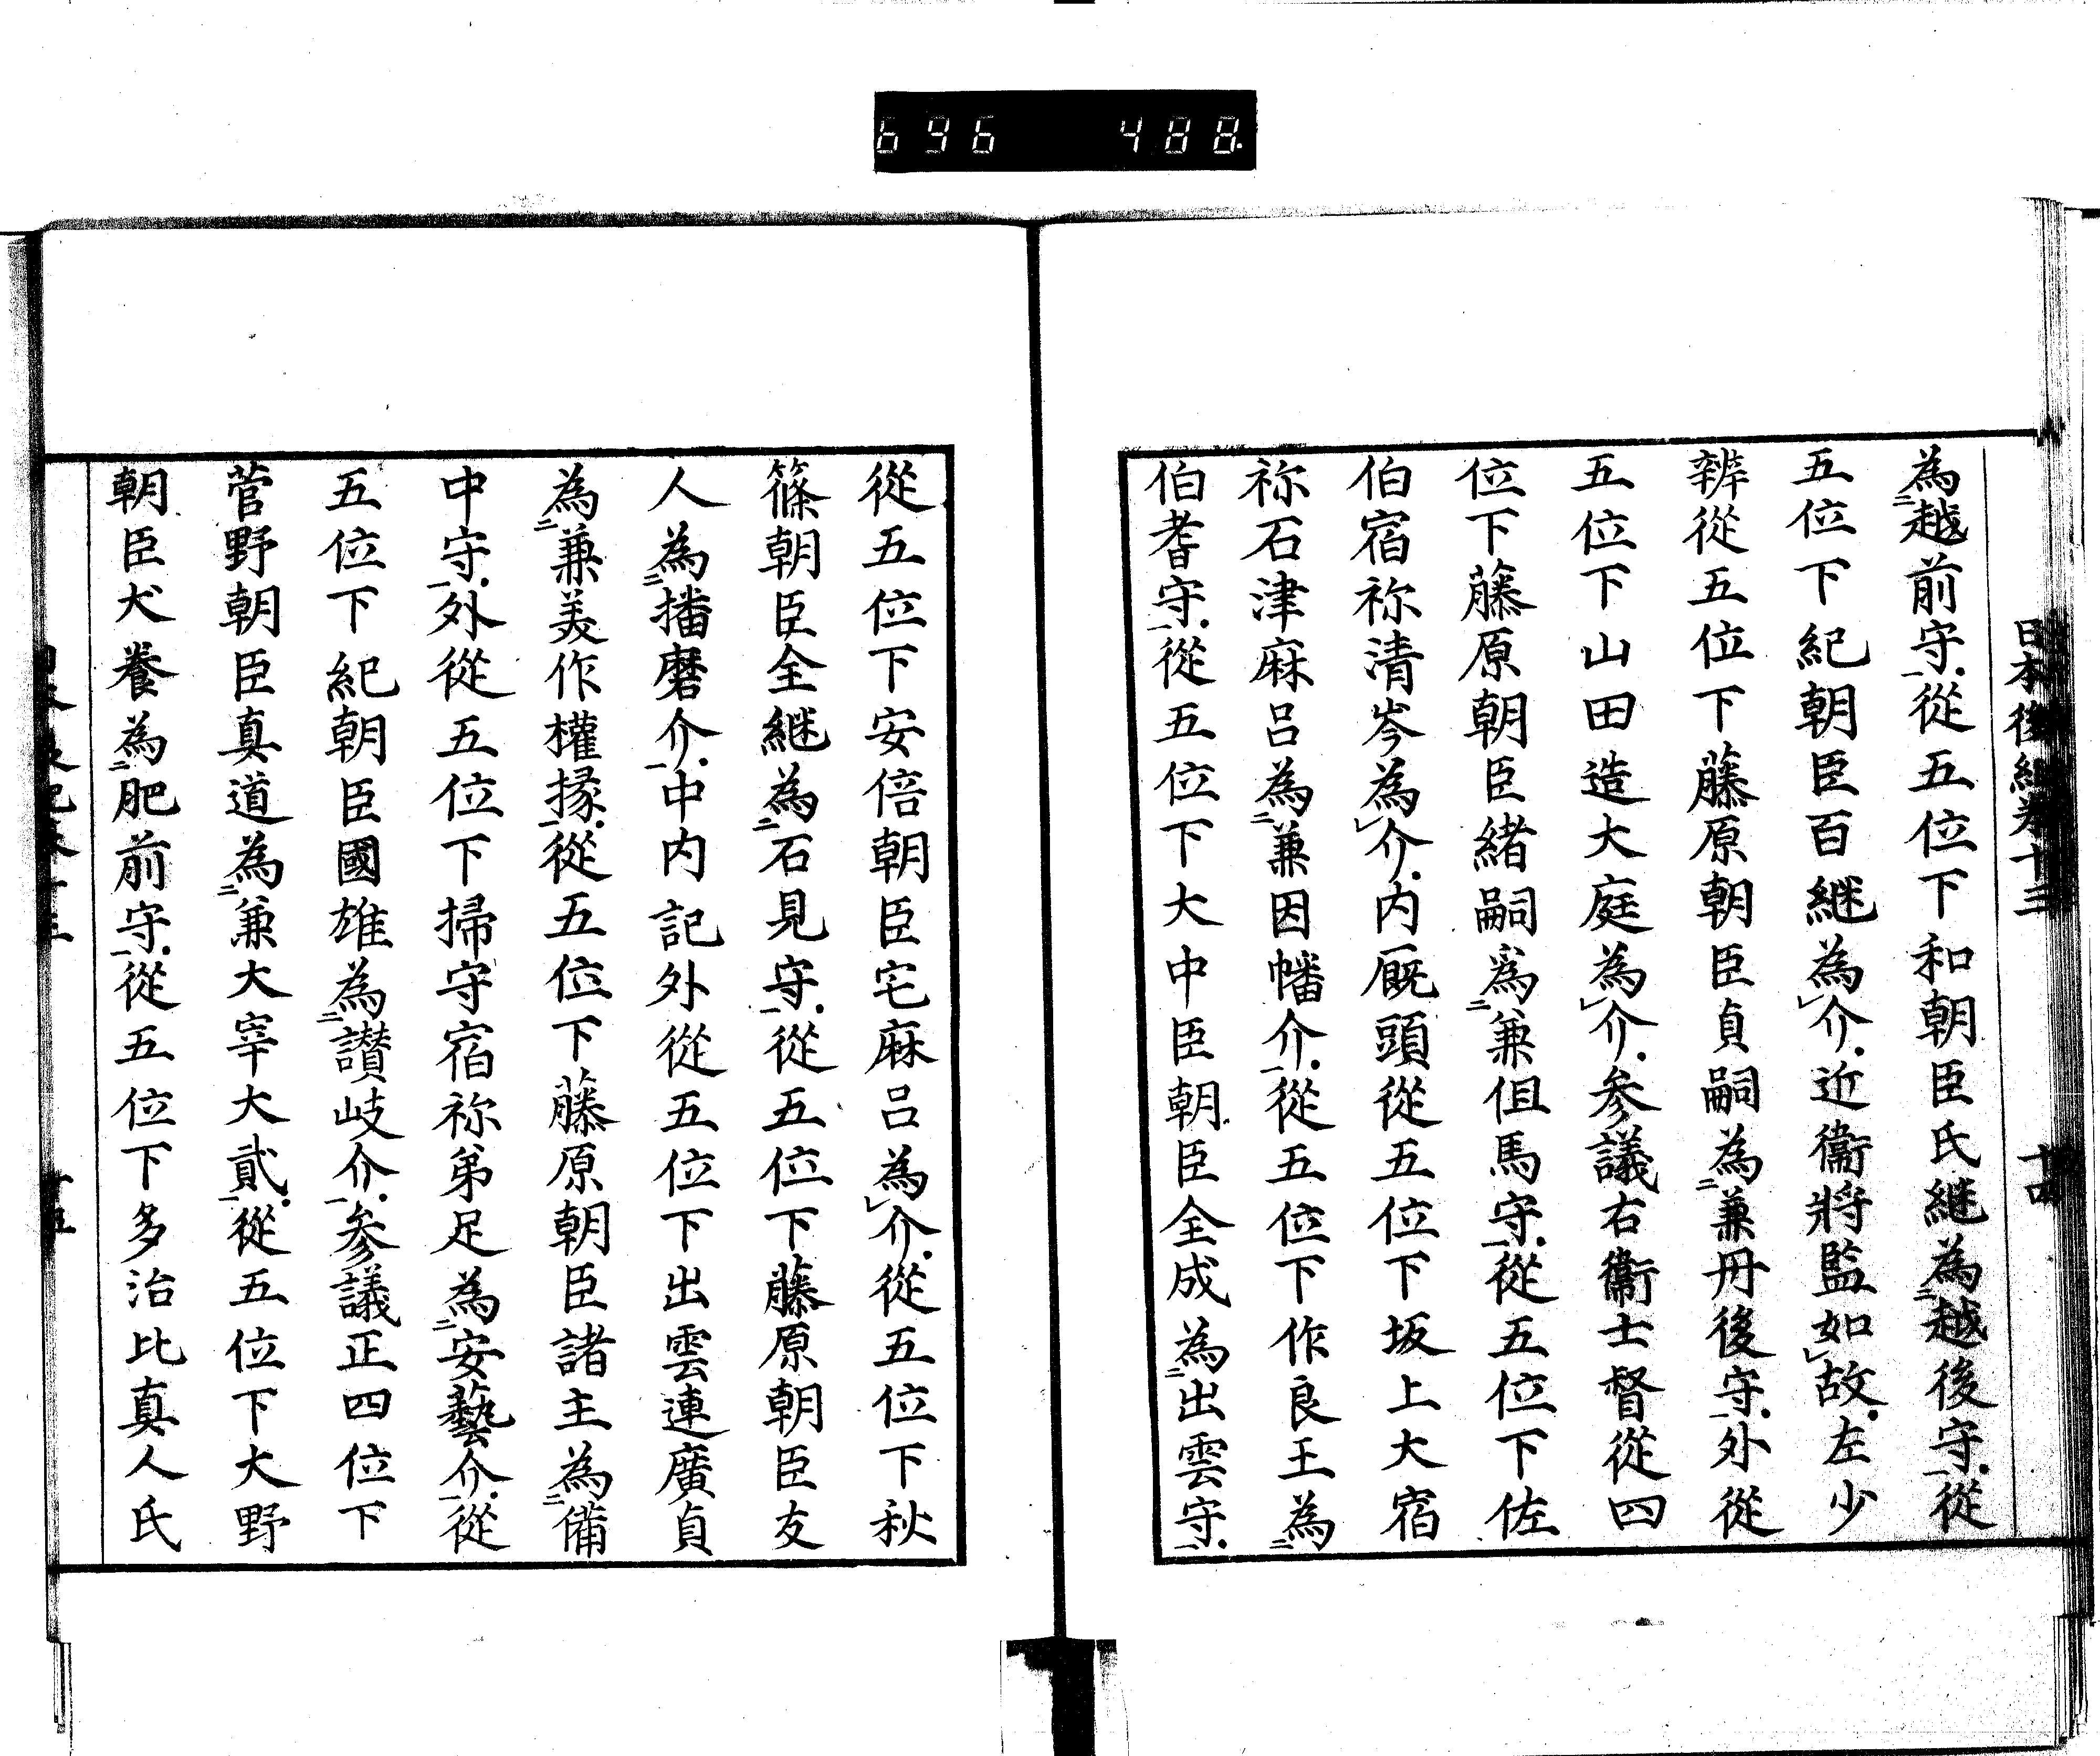 696 488
日本後紀卷十三 十四
為二越前守一從五位下和朝臣氏継為二越後守一從
五位下紀朝臣百継為レ介近衞將監如レ故左少
辨從五位下藤原朝臣貞嗣為二兼丹後守一外從
五位下山田造大庭為レ介参議右衞士督從四
位下藤原朝臣緒嗣為二兼但馬守一從五位下佐
伯宿祢清岑為レ介内厩頭從五位下坂上大宿
祢石津麻呂為二兼因幡介一從五位下作良王為二
伯耆守一從五位下大中臣朝臣全成為二出雲守一
從五位下安倍朝臣宅麻呂為レ介從五位下秋
篠朝臣全継為二石見守一從五位下藤原朝臣友
人為二播磨介一中内記外從五位下出雲連廣貞
為二兼美作權掾一從五位下藤原朝臣諸主為二備
中守一外從五位下掃守宿祢弟足為二安藝介一從
五位下紀朝臣國雄為二讃岐介一参議正四位下
菅野朝臣真道為二兼大宰大貳一從五位下大野
朝臣犬養為二肥前守一從五位下多治比真人氏